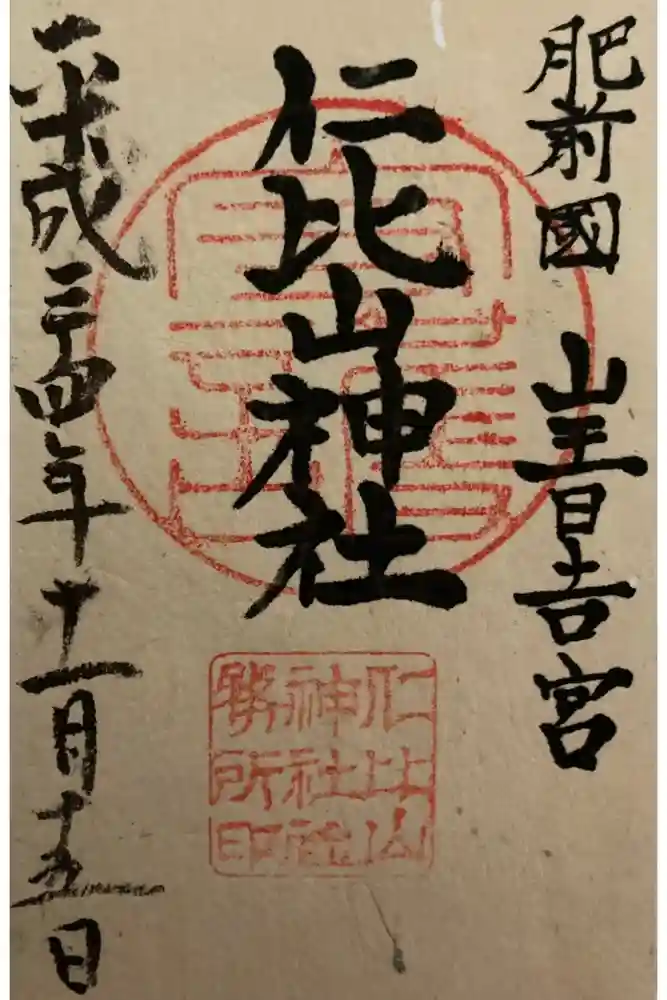 肥前國 山王日吉宮
仁比山神社
平成二十四年十一月十五日
仁比山
神社社
務所印